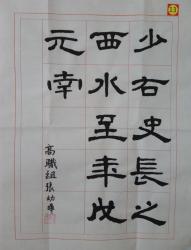 少右史長之
西水至年戊
元南
高職組 張幼